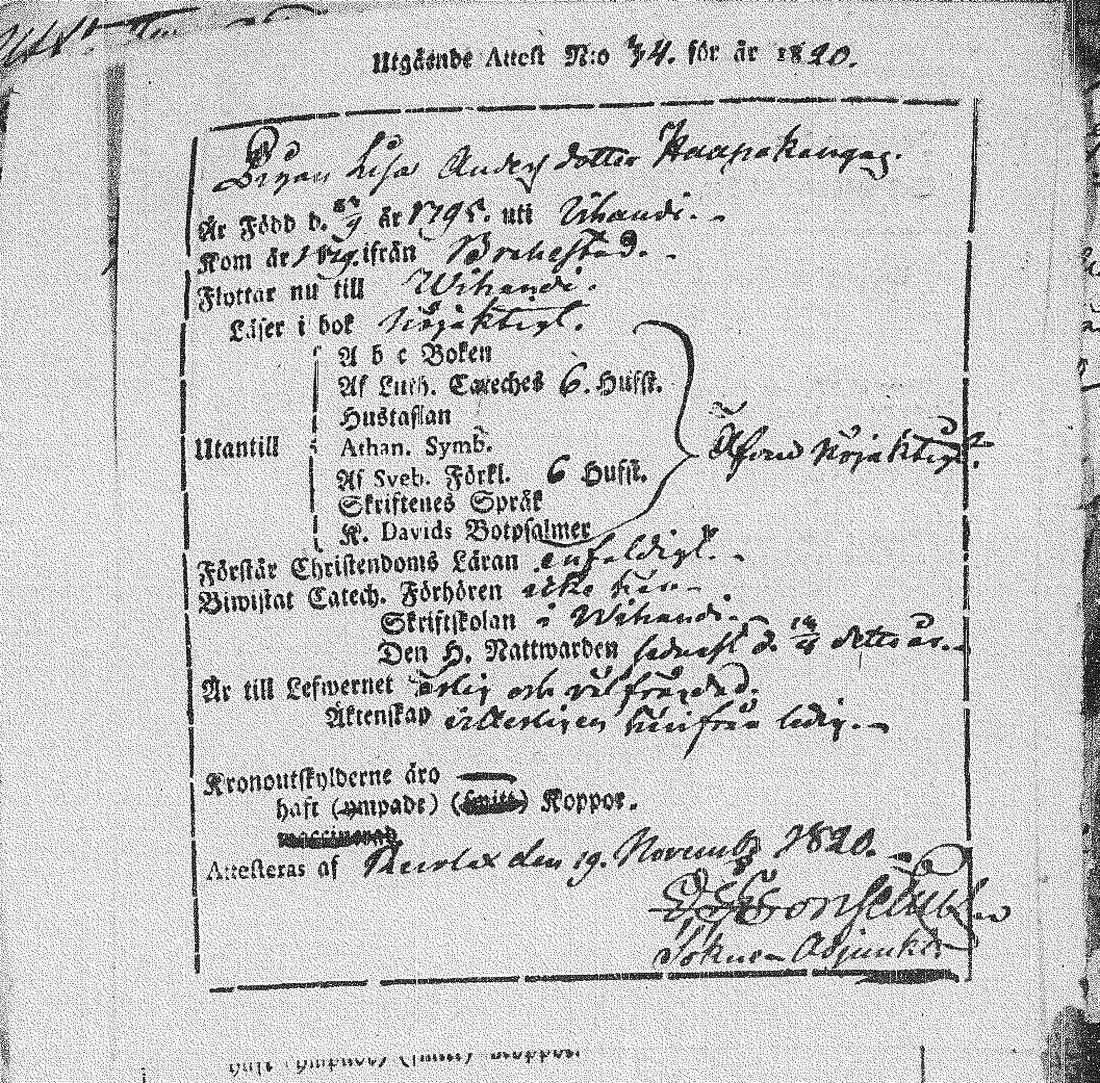 Utgående Attest N:o 74. för år 1820.
Pigan Lisa Anders dotter Haapakangas.
Är Född d. år 1795. uti Vihandi.
Kom år 1819. ifrån Brahestad.
Flyttar nu till Wihandi.
Läser i bok nöjaktigt.
A b c Boken
Af Luth. Cateches 6. Hufst.
Hustaflan
Utantill Athan. Symb. Äfven nöjaktigt.
Af Sveb. Förkl. 6 Hufst.
Skriftenes Språk
K. Davids Botpsalmer
Förstår Christendoms Läran enfaldigt.
Biwistat Catech. Förhören icke här
Skriftskolan i Wihandi.
Den H. Nattwarden sednast d. detta år.
Är till Lefwernet ärlig och välfrägdad.
Äktenskap härifrån ledig.
Kronoutskylderne äro —
haft (ympade) (smitt) Koppor.
vaccinerad
Attesteras af den 19. Novemb 1820.
Sokne Adjunkt.
haft (ympade) (smitt) Koppor.